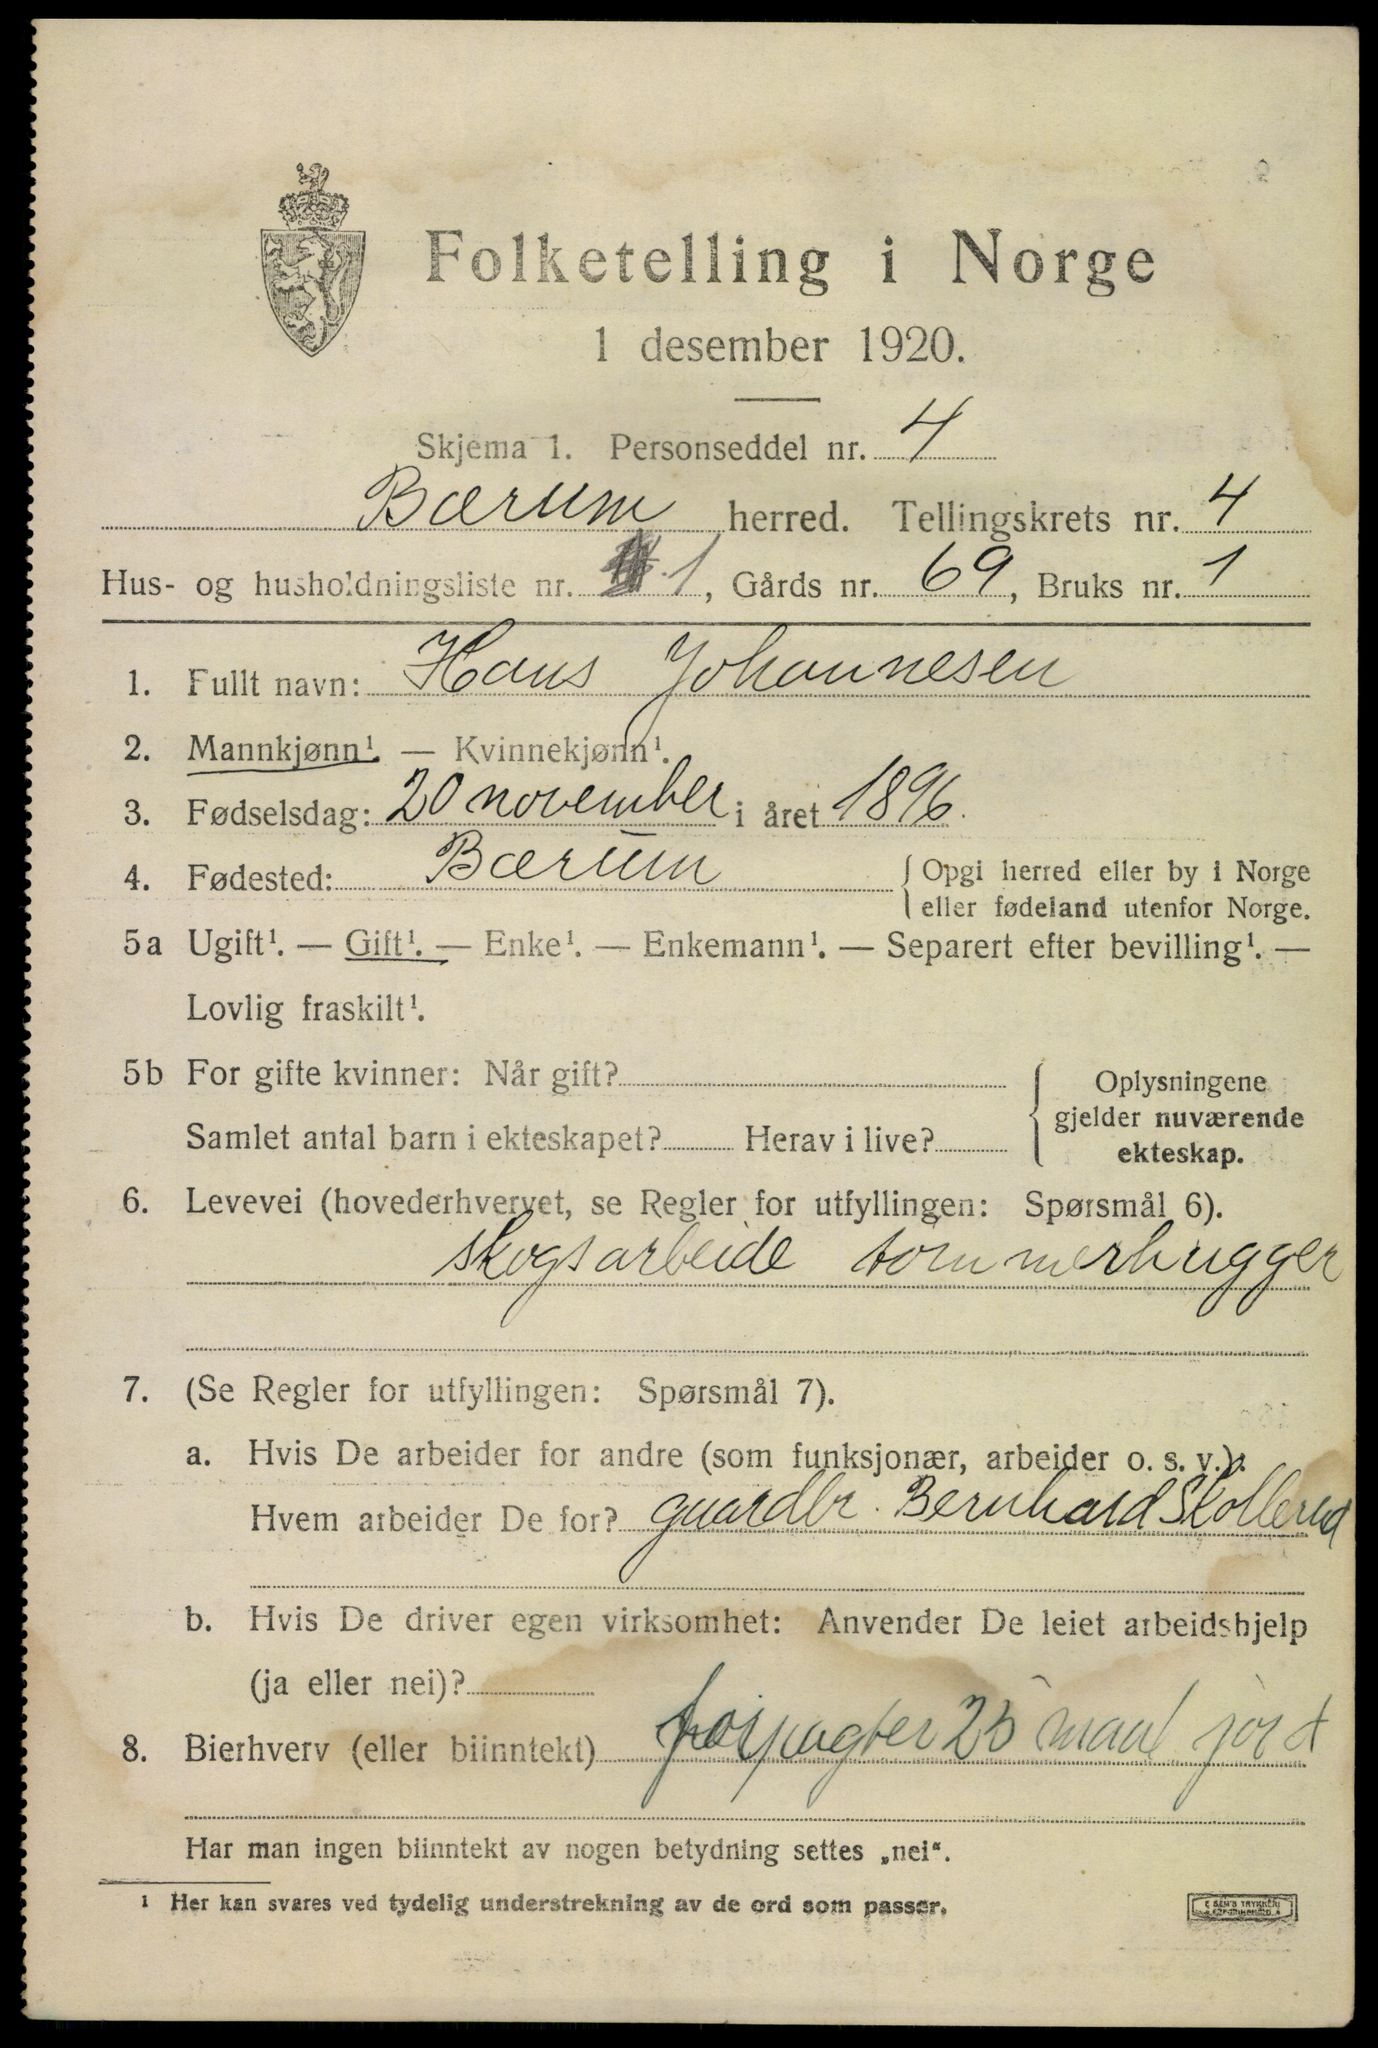 Folketelling i Norge
1 desember 1920.
Skjema 1. Personseddel nr. 4
Bærum herred. Tellingskrets nr. 4
Hus- og husholdningsliste nr. 1, Gårds nr. 69, Bruks nr. 1
1. Fullt navn: Hans Johannesen
2. Mannkjønn¹. — Kvinnekjønn¹.
3. Fødselsdag: 20 november i året 1896.
4. Fødested: Bærum { Opgi herred eller by i Norge
eller fødeland utenfor Norge.
5a Ugift¹. — Gift¹. — Enke¹. — Enkemann¹. — Separert efter bevilling¹. —
Lovlig fraskilt¹.
5b For gifte kvinner: Når gift? { Oplysningene
gjelder nuværende
Samlet antal barn i ekteskapet? Herav i live?
ekteskap.
6. Levevei (hovederhvervet, se Regler for utfyllingen: Spørsmål 6).
skogsarbeide tømmerhugger
7. (Se Regler for utfyllingen: Spørsmål 7).
a. Hvis De arbeider for andre (som funksjonær, arbeider o. s. v.):
Hvem arbeider De for? guardbr. Bernhard Skollerud
b. Hvis De driver egen virksomhet: Anvender De leiet arbeidshjelp
(ja eller nei)?
8. Bierhverv (eller biinntekt) forpagter 25 maal jord
Har man ingen biinntekt av nogen betydning settes „nei“.
¹ Her kan svares ved tydelig understrekning av de ord som passer.